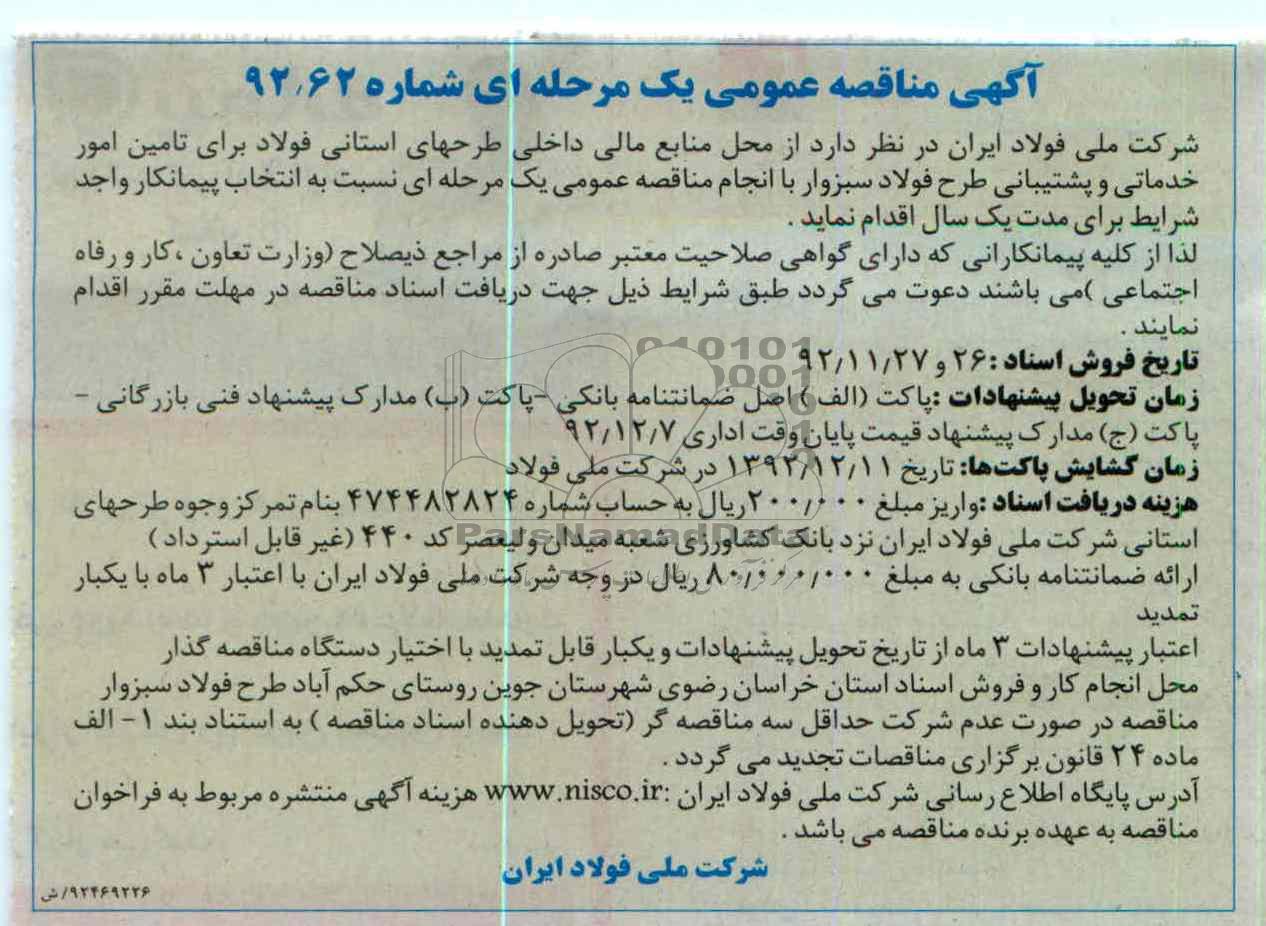 آگهی مناقصه عمومی یک مرحله ای شماره ۹۲٫۶۲
شرکت ملی فولاد ایران در نظر دارد از محل منابع مالی داخلی طرحهای استانی فولاد برای تامین امور
خدماتی و پشتیبانی طرح فولاد سبزوار با انجام مناقصه عمومی یک مرحله ای نسبت به انتخاب پیمانکار واجد
شرایط برای مدت یک سال اقدام نماید .
لذا از کلیه پیمانکارانی که دارای گواهی صلاحیت معتبر صادره از مراجع ذیصلاح (وزارت تعاون ،کار و رفاه
اجتماعی )می باشند دعوت می گردد طبق شرایط ذیل جهت دریافت اسناد مناقصه در مهلت مقرر اقدام
نمایند .
تاریخ فروش اسناد :۲۶ و ۹۲/۱۱/۲۷
زمان تحویل پیشنهادات :پاکت (الف ) اصل ضمانتنامه بانکی -پاکت (ب) مدارک پیشنهاد فنی بازرگانی -
پاکت (ج) مدارک پیشنهاد قیمت پایان وقت اداری ۹۲/۱۲/۷
زمان گشایش پاکت‌ها: تاریخ ۱۳۹۲/۱۲/۱۱ در شرکت ملی فولاد
هزینه دریافت اسناد :واریز مبلغ ۲۰۰/۰۰۰ریال به حساب شماره ۴۷۴۴۸۲۸۲۴ بنام تمرکز وجوه طرحهای
استانی شرکت ملی فولاد ایران نزد بانک کشاورزی شعبه میدان ولیعصر کد ۴۴۰ (غیر قابل استرداد )
ارائه ضمانتنامه بانکی به مبلغ ۸۰/۰۰۰/۰۰۰ ریال در وجه شرکت ملی فولاد ایران با اعتبار ۳ ماه با یکبار
تمدید
اعتبار پیشنهادات ۳ ماه از تاریخ تحویل پیشنهادات و یکبار قابل تمدید با اختیار دستگاه مناقصه گذار
محل انجام کار و فروش اسناد استان خراسان رضوی شهرستان جوین روستای حکم آباد طرح فولاد سبزوار
مناقصه در صورت عدم شرکت حداقل سه مناقصه گر (تحویل دهنده اسناد مناقصه ) به استناد بند ۱- الف
ماده ۲۴ قانون برگزاری مناقصات تجدید می گردد .
آدرس پایگاه اطلاع رسانی شرکت ملی فولاد ایران :www.nisco.ir هزینه آگهی منتشره مربوط به فراخوان
مناقصه به عهده برنده مناقصه می باشد .
شرکت ملی فولاد ایران
۹۲۴۶۹۲۲۶/ش
ParsNamadData